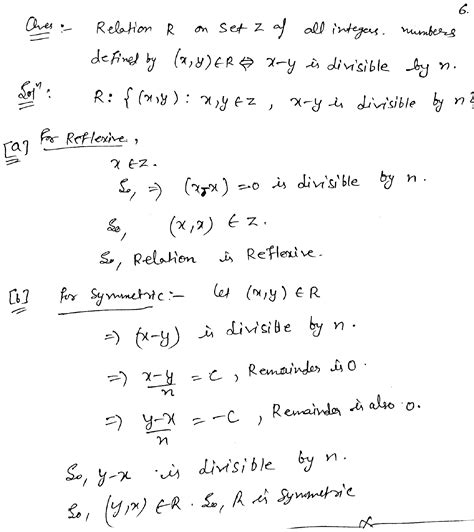 6.
Ques:- Relation R on Set Z of all integers. numbers
defined by (x,y)ϵR ⇔ x-y is divisible by n.
Solⁿ: R: { (x,y) : x,y ϵ Z , x-y is divisible by n }
[a] For Reflexive,
x ϵ Z.
So, ⇒ (x-x) =0 is divisible by n.
So, (x,x) ϵ Z.
So, Relation is Reflexive.
[b] For Symmetric:- let (x,y) ϵ R
⇒ (x-y) is divisible by n.
⇒ x-y/n = C , Remainder is 0.
⇒ y-x/n = -C , Remainder is also 0.
So, y-x is divisible by n.
So, (y,x) ϵ R. So, R is Symmetric